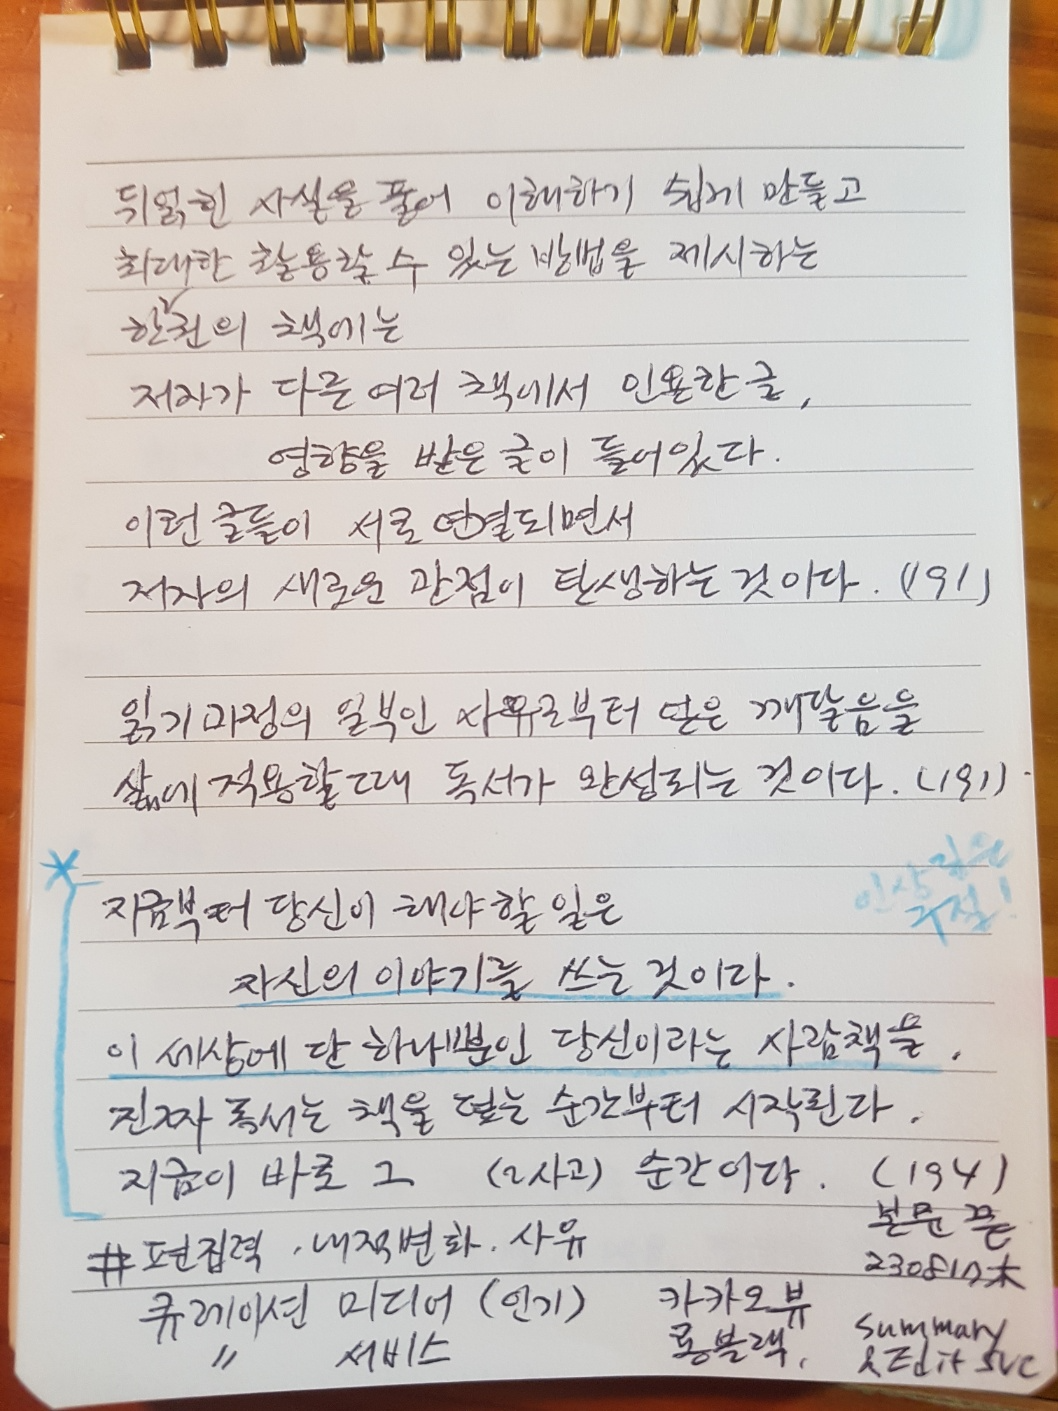 뒤얽힌 사실을 풀어 이해하기 쉽게 만들고
최대한 활용할 수 있는 방법을 제시하는
한권의 책에는
저자가 다른 여러 책에서 인용한 글,
영향을 받은 글이 들어있다.
이런 글들이 서로 연결되면서
저자의 새로운 관점이 탄생하는 것이다. (191)
읽기 과정의 일부인 사유로부터 얻은 깨달음을
삶에 적용할 때 독서가 완성되는 것이다. (191)
인상깊은
구절!
지금부터 당신이 해야할 일은
자신의 이야기를 쓰는 것이다.
이 세상에 단 하나뿐인 당신이라는 사람책을.
진짜 독서는 책을 덮는 순간부터 시작된다.
지금이 바로 그 (2사고) 순간이다. (194)
본문 끝
230817木
#편집력 . 내적변화. 사유
큐레이션 미디어 (인기) 카카오뷰
〃 서비스 롱블랙,
Summary
& Edit SVC